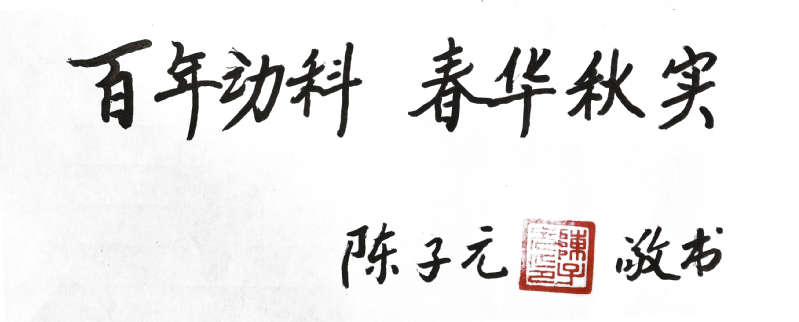 百年动科 春华秋实
陈子元 敬书
陳子